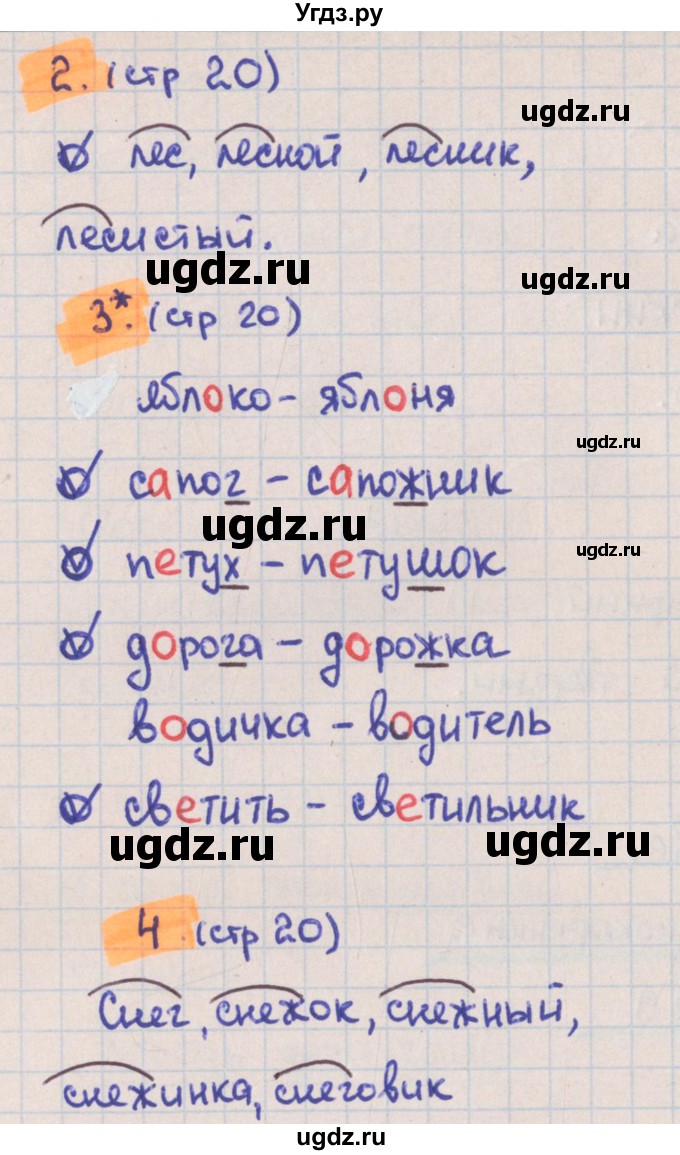 Угдз.ру
2. (стр 20)
ugdz.ru
лес, лесной, лесник,
лесистый.
ugdz.ru
ugdz.ru
3*. (стр 20)
яблоко - яблоня
ugdz.ru
сапог - сапожник
ugdz.ru
петух - петушок
ugdz.ru
дорога - дорожка
водичка - водитель
светить - светильник
ugdz.ru
ugdz.ru
4. (стр 20)
Снег, снежок, снежный,
снежинка, снеговик
ugdz.ru